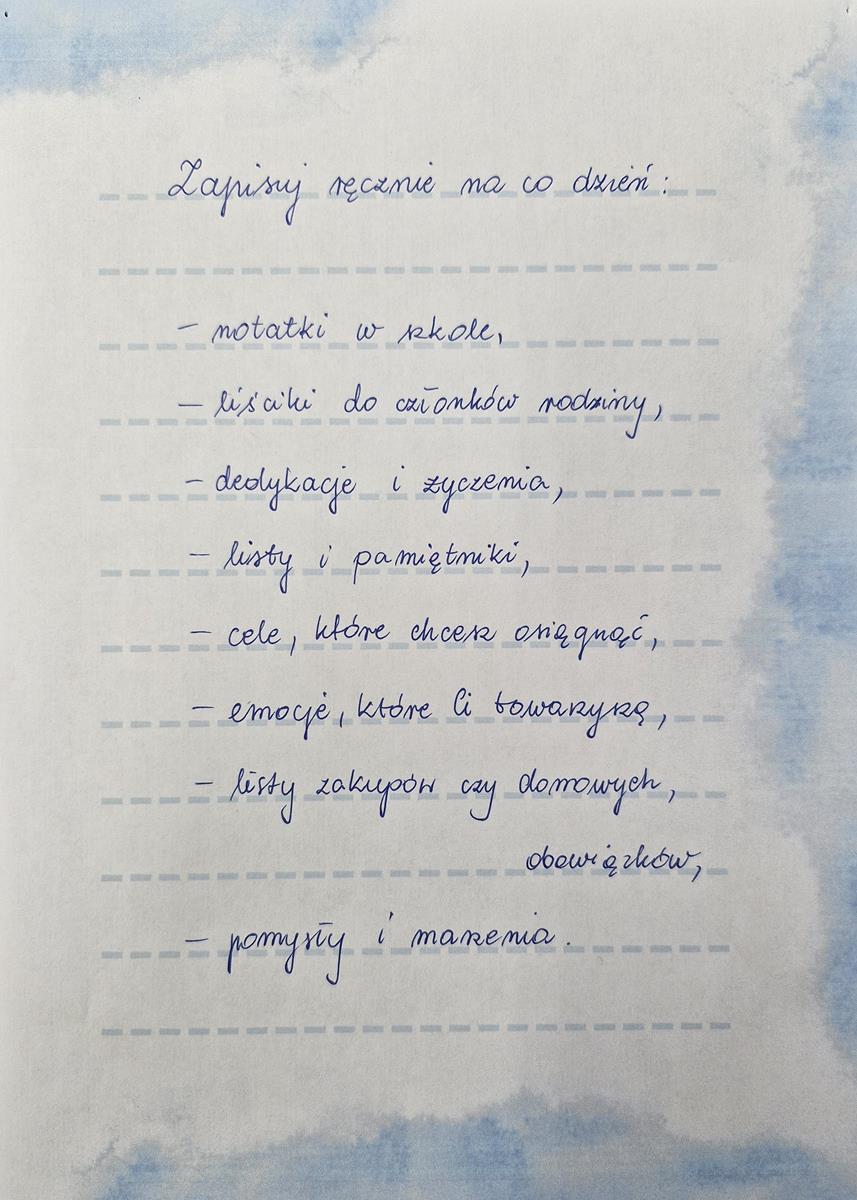 Zapisuj ręcznie na co dzień:
– notatki w szkole,
– liściki do członków rodziny,
– dedykacje i życzenia,
– listy i pamiętniki,
– cele, które chcesz osiągnąć,
– emocje, które Ci towarzyszą,
– listy zakupów czy domowych,
obowiązków,
– pomysły i marzenia.